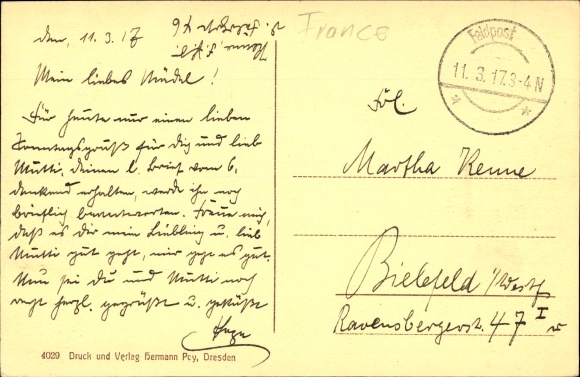 den, 11.3.17
France
Mein liebes Mädel!
Für heute nur einen lieben
Sonntagsgruß für dich und lieb
Mutti. Deinen l. Brief vom 6.
dankend erhalten, werde ihn noch
brieflich beantworten. Freue mich,
daß es dir mein Liebling u. lieb
Mutti gut geht, mir geht es gut.
Nun sei du und Mutti noch
recht herzl. gegrüßt u. geküßt
4029 Druck und Verlag Hermann Poy, Dresden
Feldpost
11.3.17.3-4N
Frl.
Martha Kenne
Bielefeld i/Westf
Ravensbergerstr. 47 I